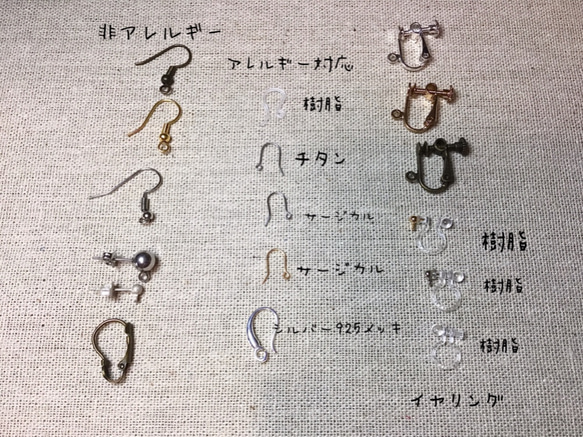 非アレルギー
アレルギー対応
樹脂
チタン
サージカル
サージカル
シルバー925メッキ
樹脂
樹脂
樹脂
イヤリング